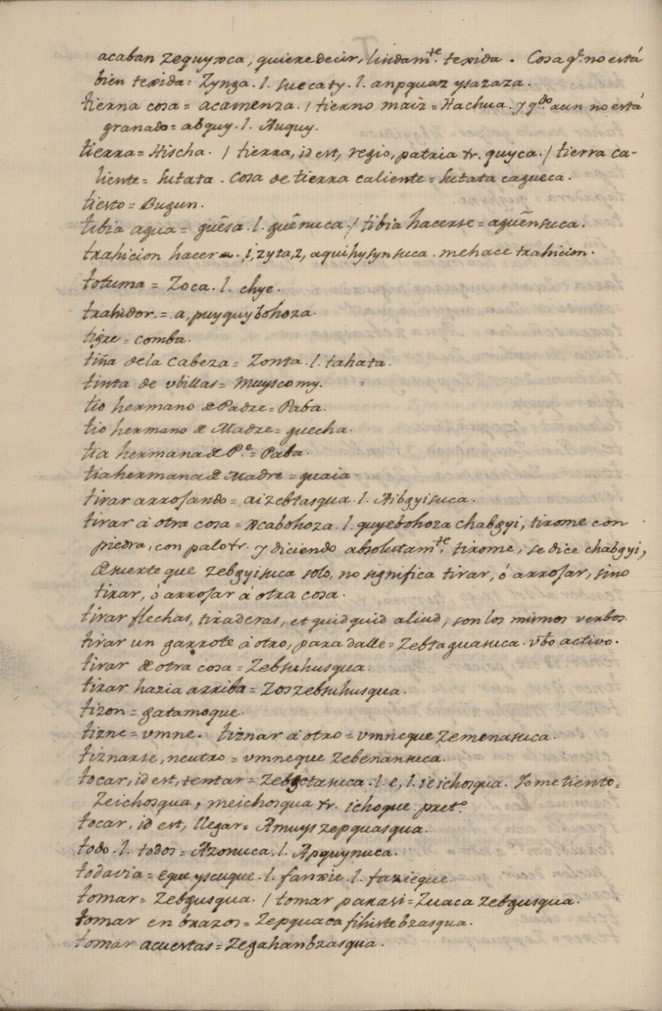 acaban zequyxca, quiere decir, lindam.te texida. Cosa q.e no está
bien texida = Zynga. l. suecaty. l. anpquaz ysazaza.
tierna cosa = acamenza. / tierno maiz = Hachua. y q.do aun no está
granado = abquy. l. Auquy.
tierra = Hischa. / tierra, id est, regio, patria &r. quyca. / tierra ca-
liente = sutata. Cosa de tierra caliente = sutata cagueca.
tiesto = Bugun.
tibia agua = guẽsa. l. guẽnuca. / tibia hacerse = aguẽnsuca.
trahicion hacer =. i, zyta, z, aquihysynsuca. me hace trahicion.
totuma = Zoca. l. chye.
trahidor. = a, puyquy bohoza.
tigre = comba.
tiña de la Cabeza = Zonta. l. tahata.
tinta de ubillas = muyscomy.
tio hermano de Padre = Paba.
tio hermano de Madre = guecha.
tia hermana de P.e = Paba.
tia hermana de Madre = guaia.
tirar arrojando = aizebtasqua. l. Aibgyisuca.
tirar á otra cosa = ycabohoza. l. guyebohoza chabgyi, tirome con
piedra, con palo &r. y diciendo absolutam.te tirome, se dice chabgyi,
de suerte que zebgyisuca solo, no significa tirar, ó arrojar, sino
tirar, ó arrojar á otra cosa.
tirar flechas, tiraderas, et quid quid aliud, son los mismos verbos
tirar un garrote á otro, para dalle = Zebtaguasuca. vbo activo.
tirar de otra cosa = Zebsuhusqua.
tirar hazia arriba = Zos zebsuhusqua.
tizon = gatamoque.
tizne = vmne. tiznar á otro = vmneque zemenasuca.
tiznarse, neutro = vmneque zebenansuca.
tocar, id est, tentar = Zebgctasuca. l. e, l. ie ichosqua. Yo me tiento =
Zeichosqua, meichosqua &r. ichoque pret.o
tocar, id est, llegar = Amuys zepquasqua.
todo. l. todos = Azonuca. l. Apquynuca.
todavia = eque yscuque. l. fanxie. l. faxieque.
tomar = Zebgusqua. / tomar para si = Zuaca zebgusqua.
tomar en brazos = Zepquaca fihiste bzasqua.
tomar acuestas = zegahan bzasqua.